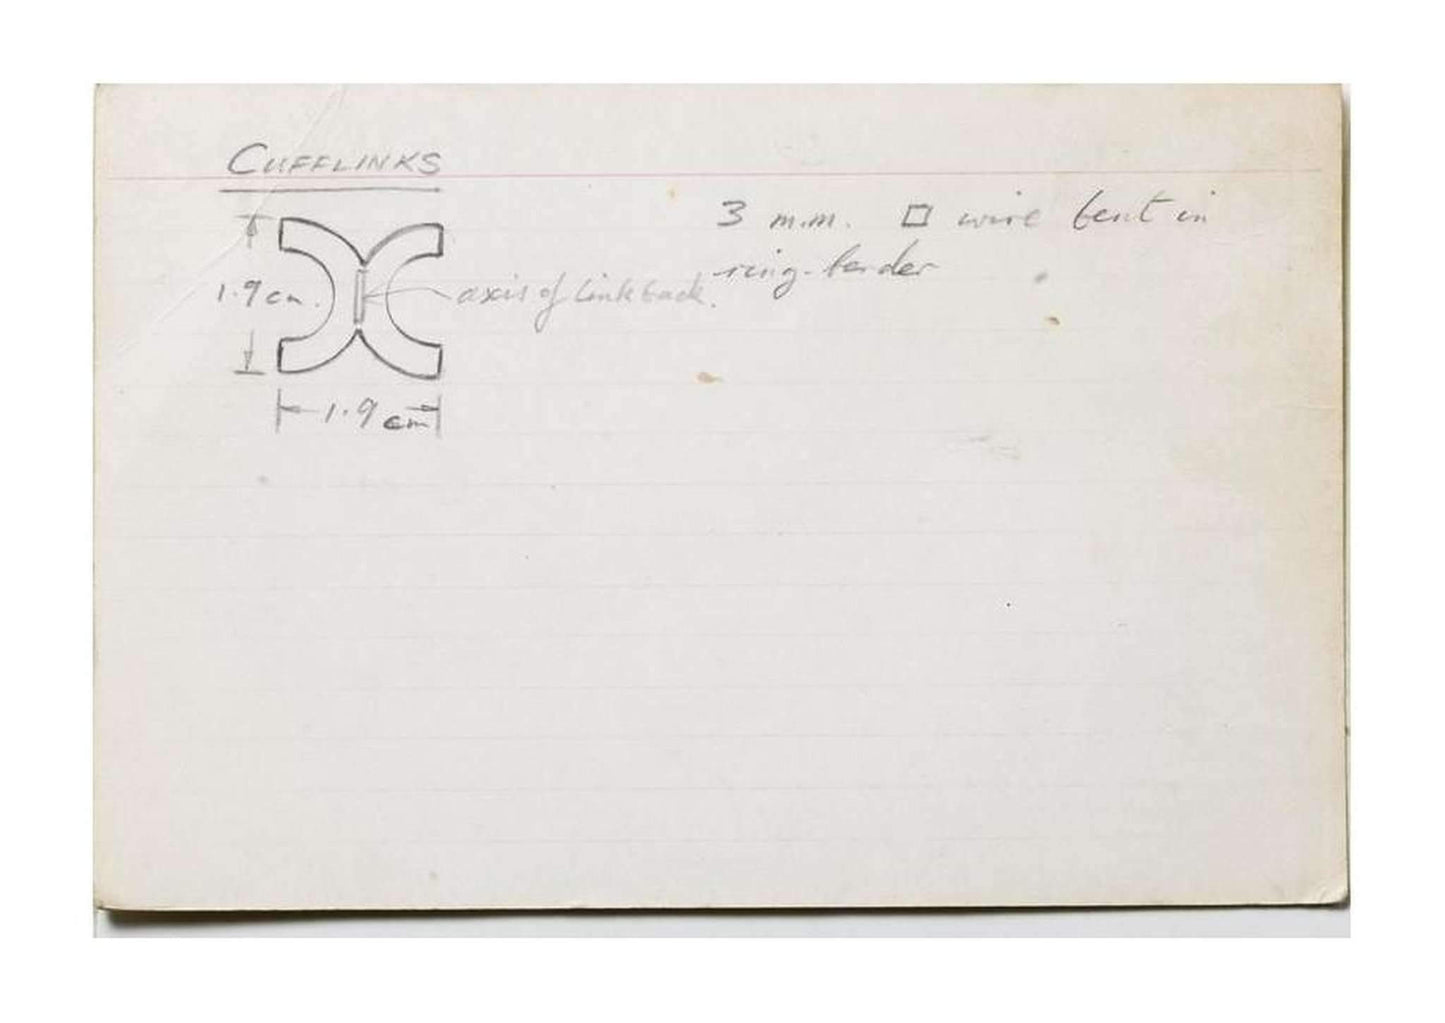 CUFFLINKS
3 m.m. □ wire bent in
ring-bender
1.9 cm.
axis of link back.
1.9 cm